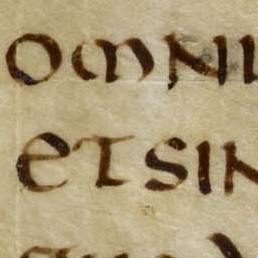 omni
etsin